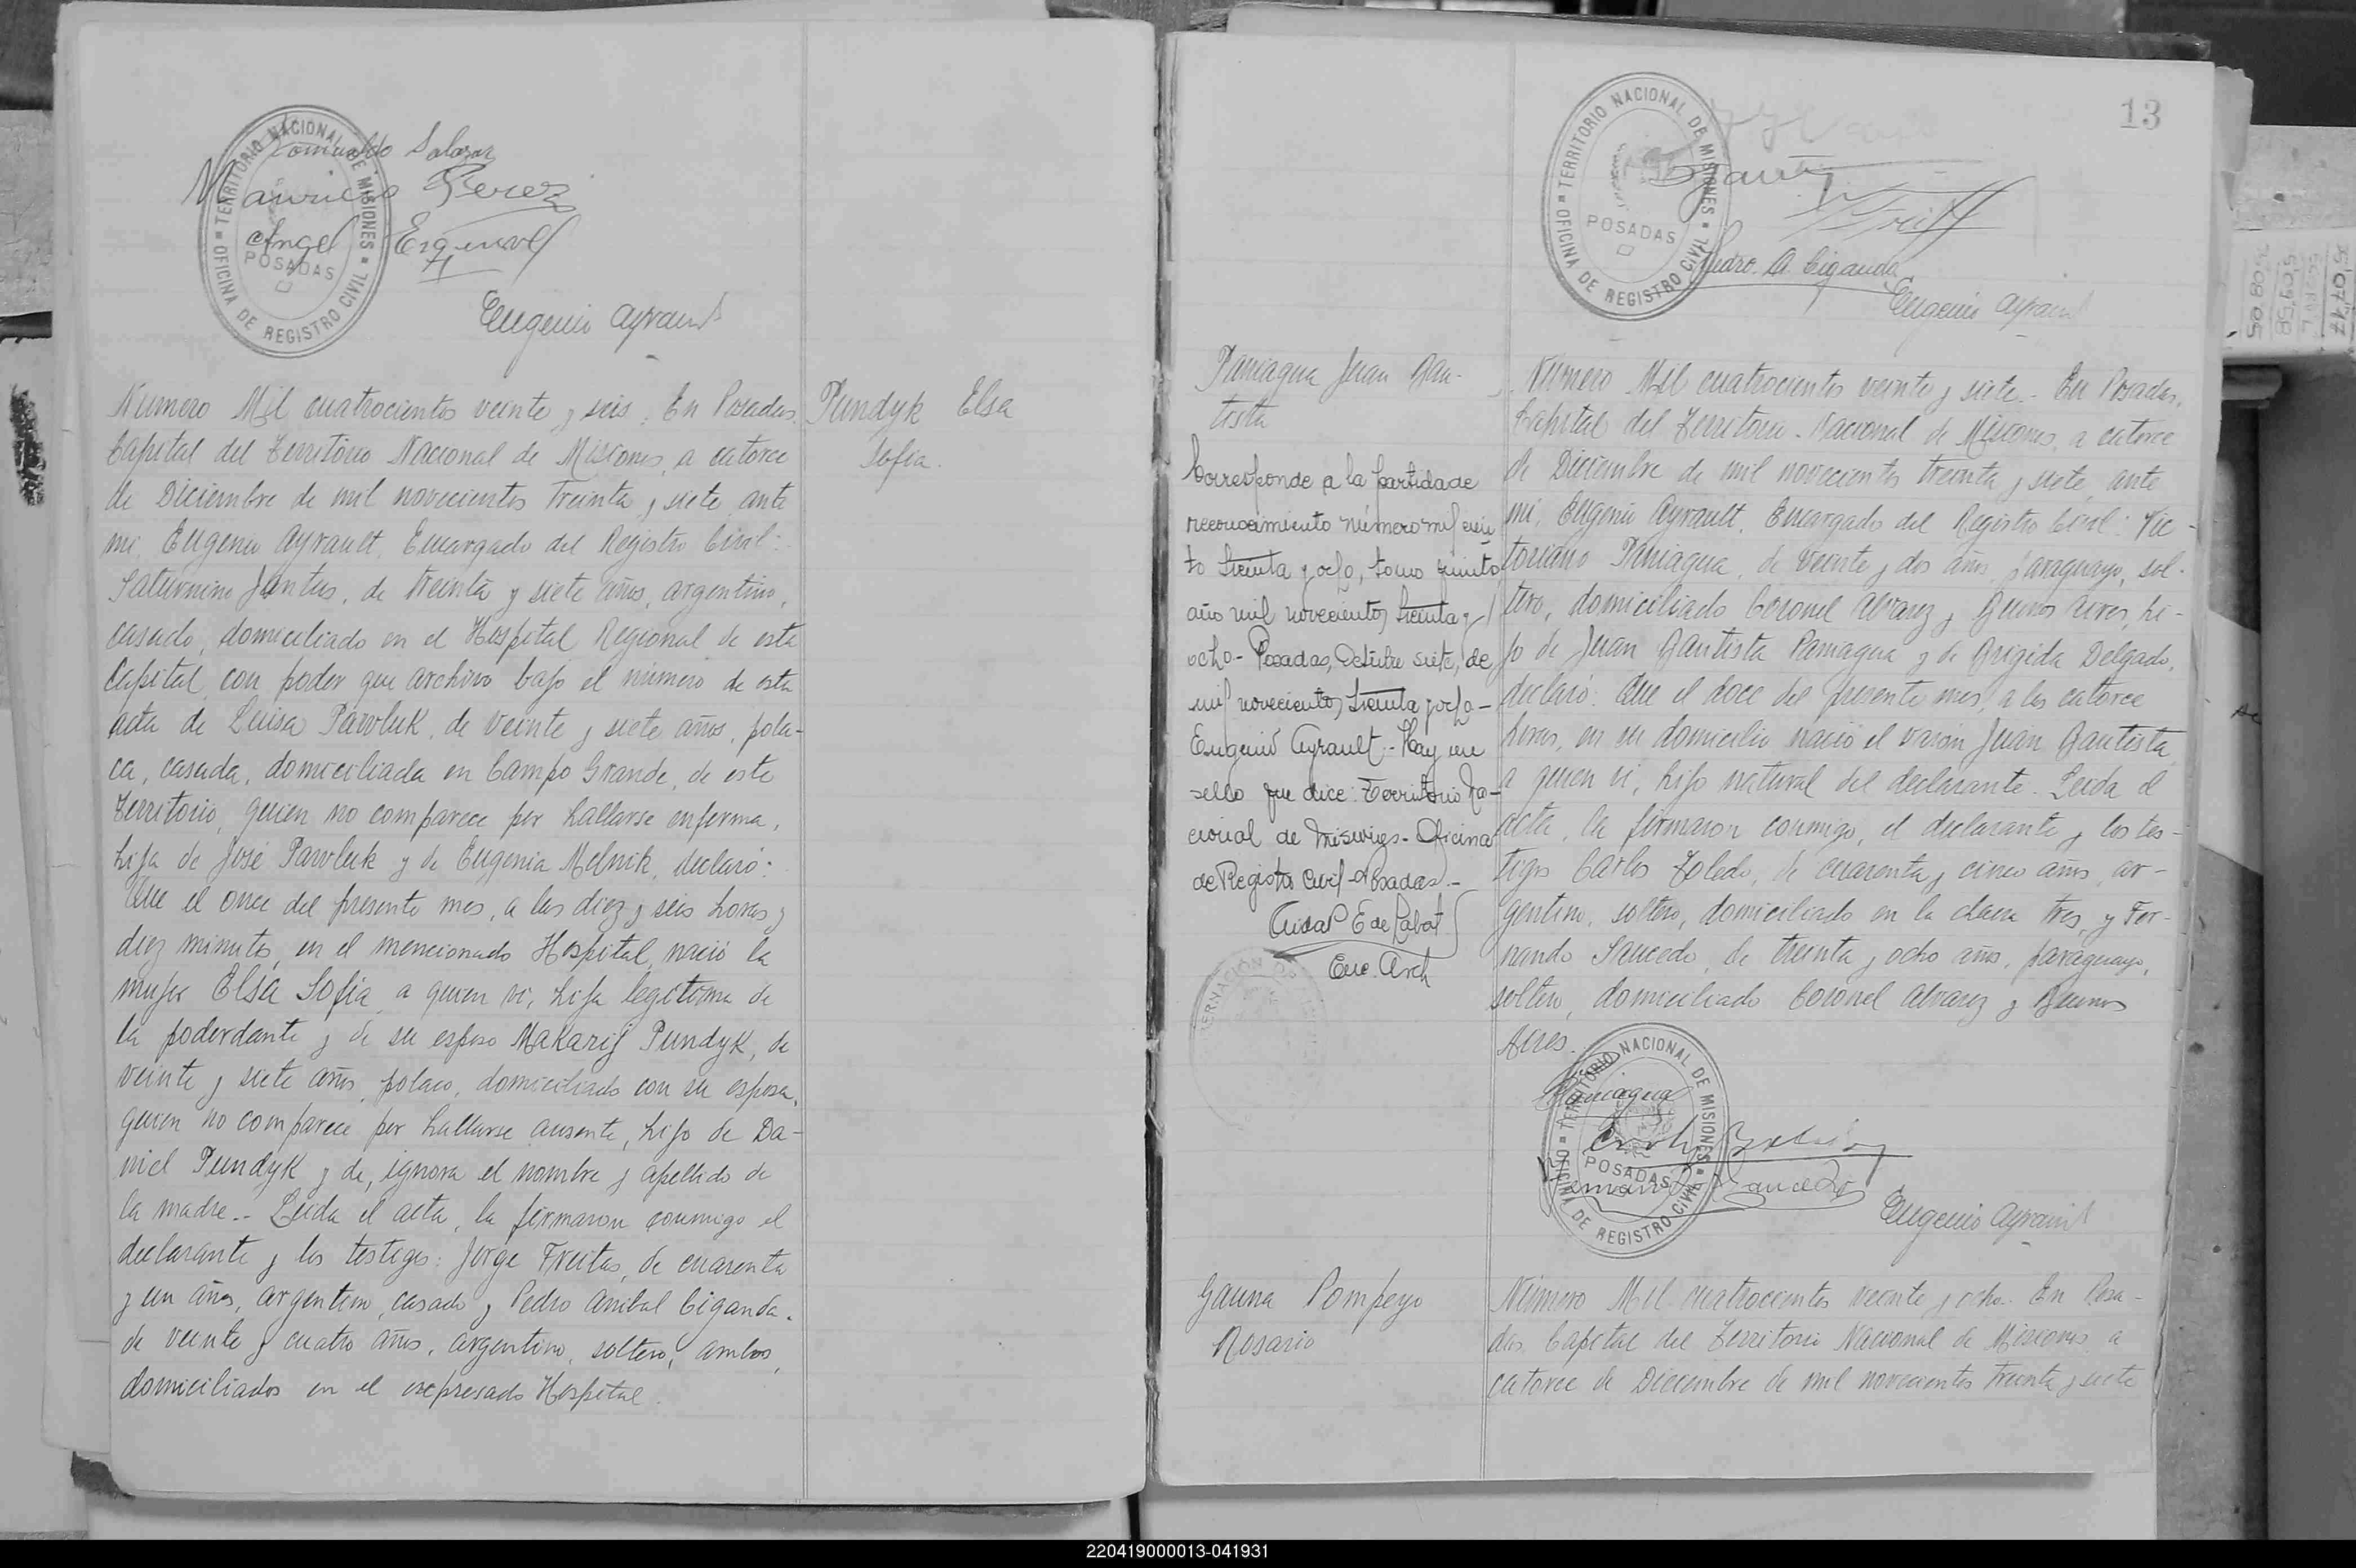 Romualdo Salazar
Mauricio Perez
Angel Esquivel
TERRITORIO NACIONAL DE MISIONES
POSADAS
OFICINA DE REGISTRO CIVIL
Eugenio Ayrault
Pundyk Elsa
Sofia.
Número Mil cuatrocientos veinte y seis. En Posadas.
Capital del Territorio Nacional de Misiones, a catorce
de Diciembre de mil novecientos treinta y siete, ante
mi, Eugenio Ayrault, Encargado del Registro Civil:
Saturnino Jantus, de treinta y siete años, argentino,
casado, domiciliado en el Hospital Regional de esta
Capital, con poder que archivo bajo el número de esta
acta de Luisa Pawluk, de veinte y siete años, pola-
ca, casada, domiciliada en Campo Grande, de este
Territorio, quien no comparece por hallarse enferma,
hija de José Pawluk y de Eugenia Melnik, declaró:
Que el once del presente mes, a las diez y seis horas y
diez minutos, en el mencionado Hospital, nació la
mujer Elsa Sofia, a quien vi, hija legitima de
la poderdante y de su esposo Makarij Pundyk, de
veinte y siete años, polaco, domiciliado con su esposa,
quien no comparece por hallarse ausente, hijo de Da-
niel Pundyk y de, ignora el nombre y apellido de
la madre.- Leida el acta, la firmaron conmigo el
declarante y los testigos: Jorge Freitas, de cuarenta
y un años, argentino, casado y Pedro Anibal Ciganda.
de veinte y cuatro años, argentino, soltero, ambos,
domiciliados en el expresado Hospital.
13
TERRITORIO NACIONAL DE MISIONES
POSADAS
OFICINA DE REGISTRO CIVIL
Pedro. A. Ciganda
Eugenio Ayrault
Paniagua Juan Bau-
tista
Corresponde a la partida de
reconocimiento número mil cien
to treinta y ocho, tomo quinto
año mil novecientos treinta y
ocho- Posadas, Octubre siete, de
mil novecientos treinta y ocho-
Eugenio Ayrault.- Hay un
sello que dice: Territorio Na-
cional de Misiones- Oficina
de Registro Civil-Posadas.-
E de Labat
Enc. Arch
Número Mil cuatrocientos veinte y siete.- En Posadas,
Capital del Territorio Nacional de Misiones, a catorce
de Diciembre de mil novecientos treinta y siete, ante
mi, Eugenio Ayrault, Encargado del Registro Civil: Vic-
toriano Paniagua, de veinte y dos años, paraguayo, sol-
tero, domiciliado Coronel Alvarez y Buenos Aires, hi-
jo de Juan Bautista Paniagua y de Brigida Delgado,
declaró: Que el doce del presente mes, a las catorce
horas, en su domicilio, nació el varón Juan Bautista,
a quien vi, hijo natural del declarante. Leida el
acta, la firmaron conmigo, el declarante y los tes-
tigos Carlos Toledo, de cuarenta y cinco años, ar-
gentino, soltero, domiciliado en la chacra tres, y Fer-
nando Saucedo, de treinta y ocho años, paraguayo,
soltero, domiciliado Coronel Alvarez y Buenos
Aires.
Paniagua
Fernando Saucedo
TERRITORIO NACIONAL DE MISIONES
POSADAS
OFICINA DE REGISTRO CIVIL
Eugenio Ayrault
Gauna Pompeyo
Rosario
Número Mil cuatrocientos veinte y ocho.- En Posa-
das, Capital del Territorio Nacional de Misiones, a
catorce de Diciembre de mil novecientos treinta y siete
220419000013-041931